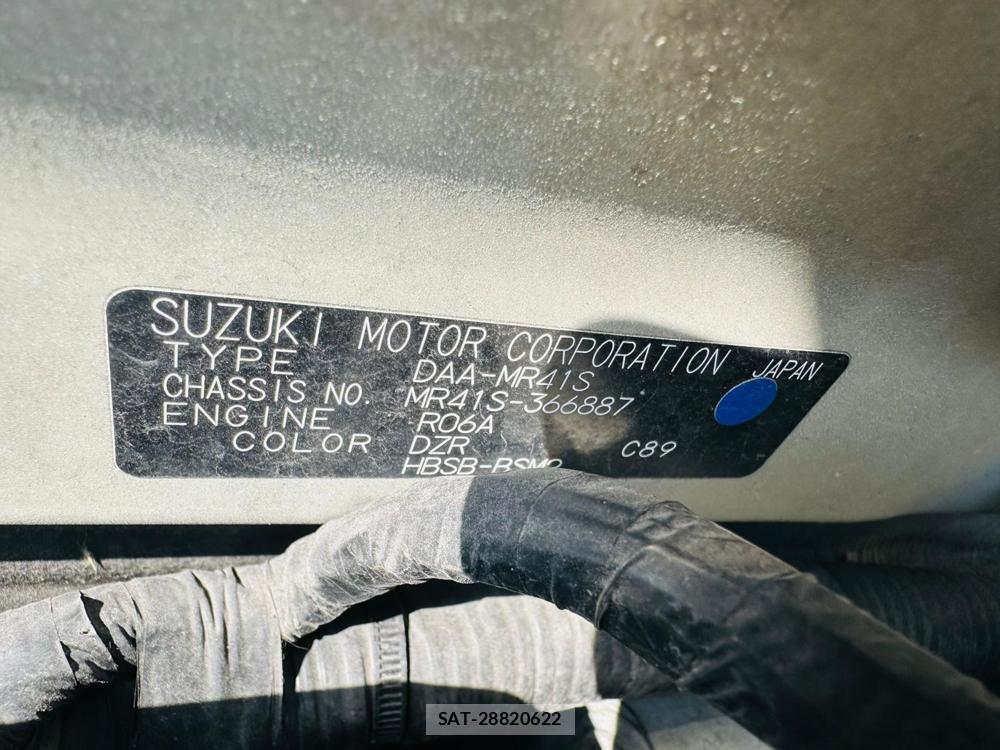 SUZUKI MOTOR CORPORATION JAPAN
TYPE DAA-MR41S
CHASSIS NO. MR41S-366887
ENGINE R06A
COLOR DZR C89
SAT-28820622